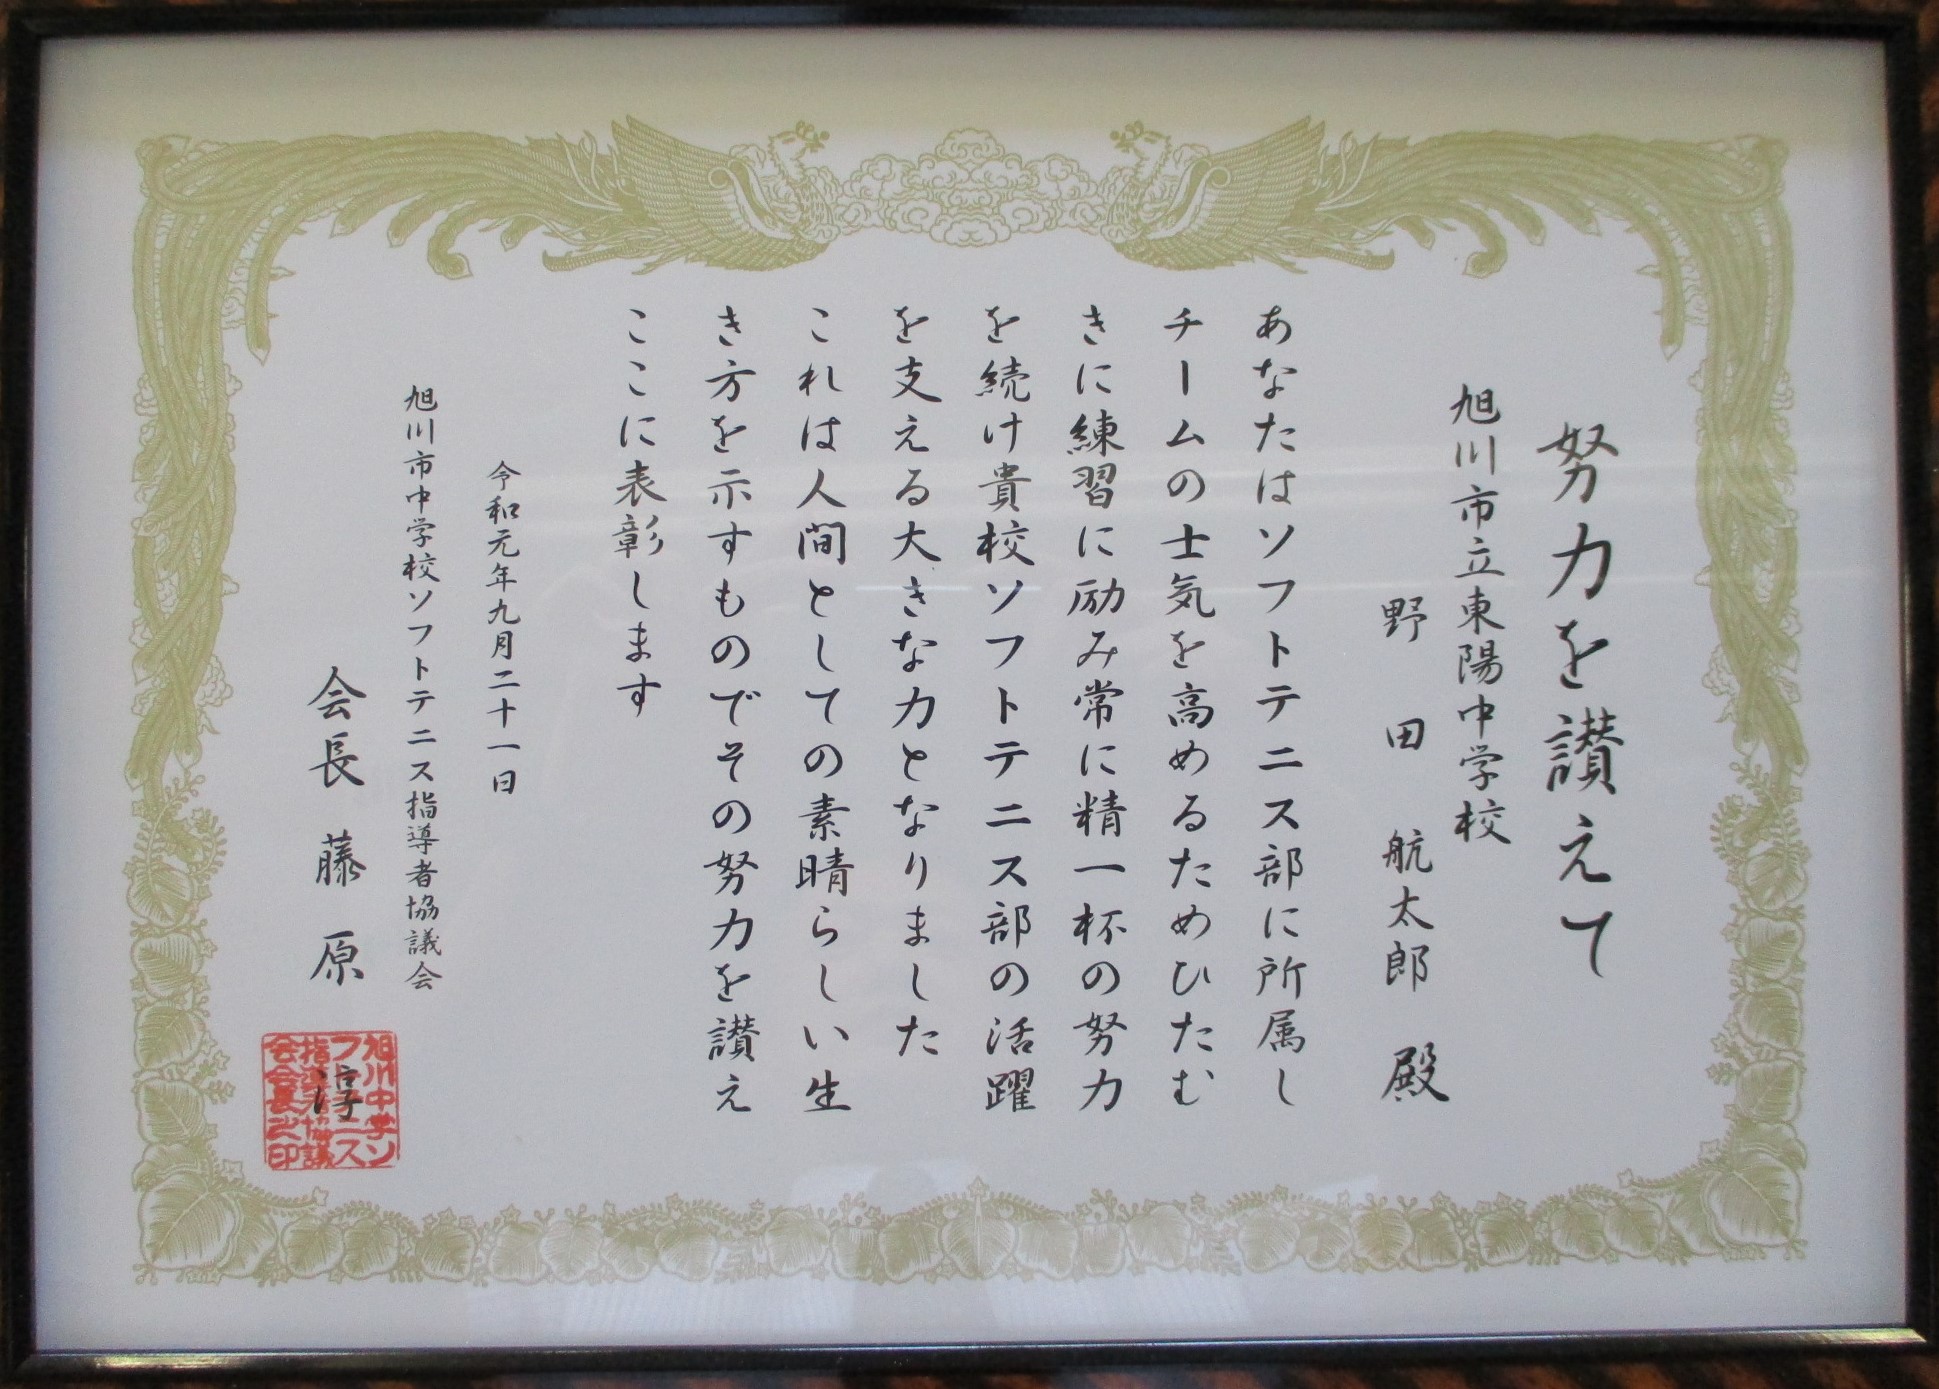 努力を讃えて
旭川市立東陽中学校
野田航太郎 殿
あなたはソフトテニス部に所属し
チームの士気を高めるためひたむ
きに練習に励み常に精一杯の努力
を続け貴校ソフトテニス部の活躍
を支える大きな力となりました
これは人間としての素晴らしい生
き方を示すものでその努力を讃え
ここに表彰します
令和元年九月二十一日
旭川市中学校ソフトテニス指導者協議会
会長 藤原 淳
旭川中学ソ
フトテニス
指導者協議
会会長之印